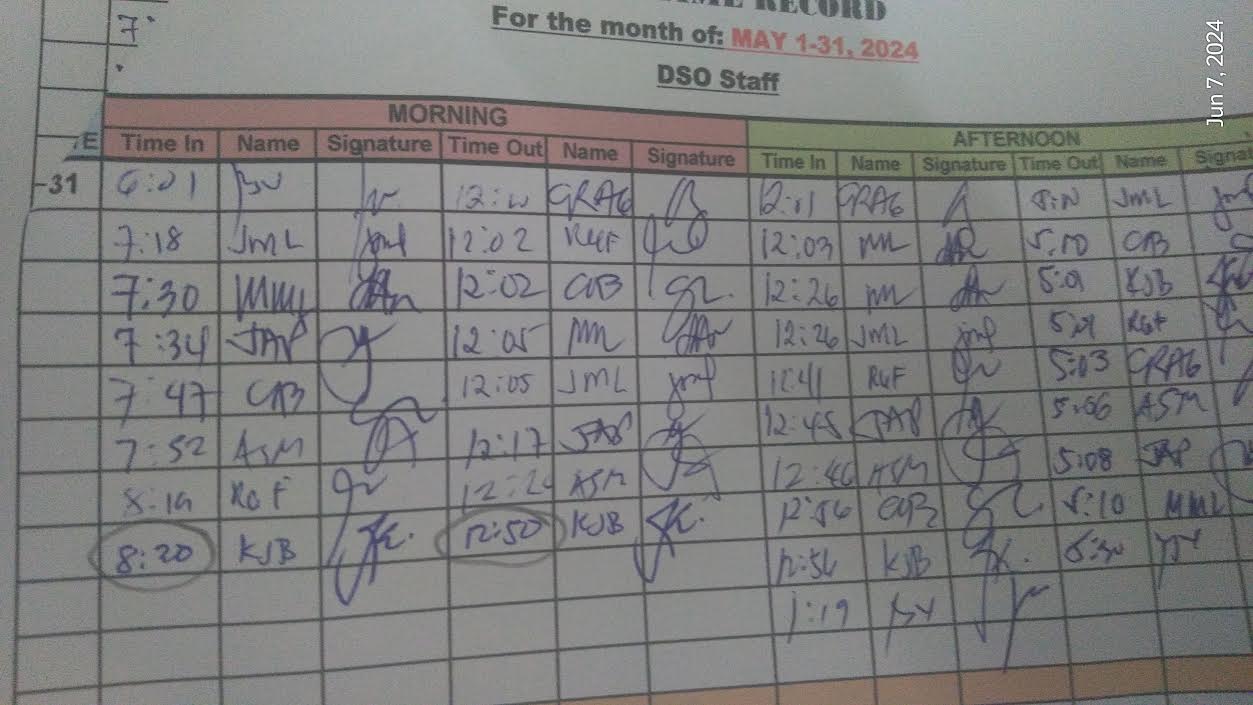 7
RECORD
For the month of: MAY 1-31, 2024
DSO Staff
Jun 7, 2024
MORNING AFTERNOON
E Time In Name Signature Time Out Name Signature Time In Name Signature Time Out Name Signat
-31 6:01 GRAG 12:11 GRAG JML
7:18 JML 12:02 RGF 12:03 ML 5:00 CAB
7:30 MML 12:02 CAB 12:26 ML 5:01 KJB
7:34 JAP 12:05 ML 12:26 JML 5:01 RGF
7:47 CAB 12:05 JML RGF 5:03 GRAG
7:52 ASM 12:17 JAP 12:45 JAP 5:06 ASM
8:19 RGF ASM 12:46 ASM 5:08 JAP
8:20 KJB 12:50 KJB 12:56 CAB 5:10 MML
12:56 KJB 5:30
1:19